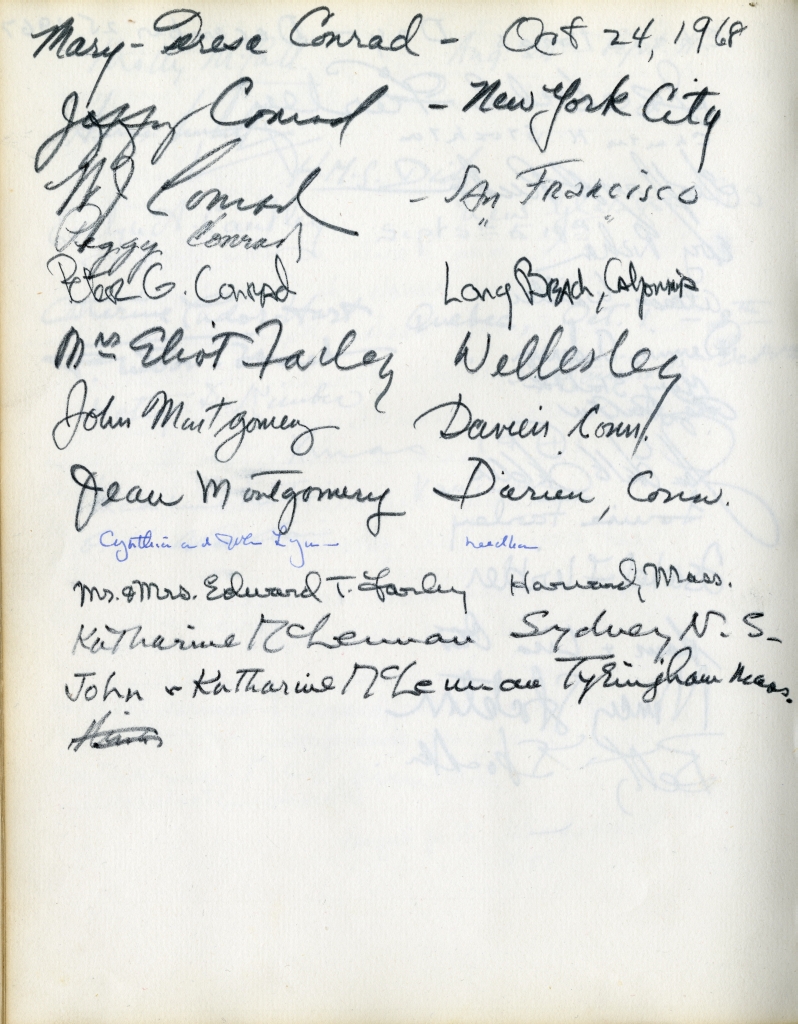 Mary-Terese Conrad - Oct 24, 1968
Jaffey Conrad - New York City
Conrad - San Francisco
Peggy Conrad " "
Peter G. Conrad Long Beach, California
Mrs Eliot Farley Wellesley
John Montgomery Darien, Conn.
Jean Montgomery Darien, Conn.
Cynthia and John Lynn Needham
Mr. & Mrs. Edward T. Farley Harvard, Mass.
Katharine McLennan Sydney N. S.
John & Katharine McLennan Tyringham Mass.